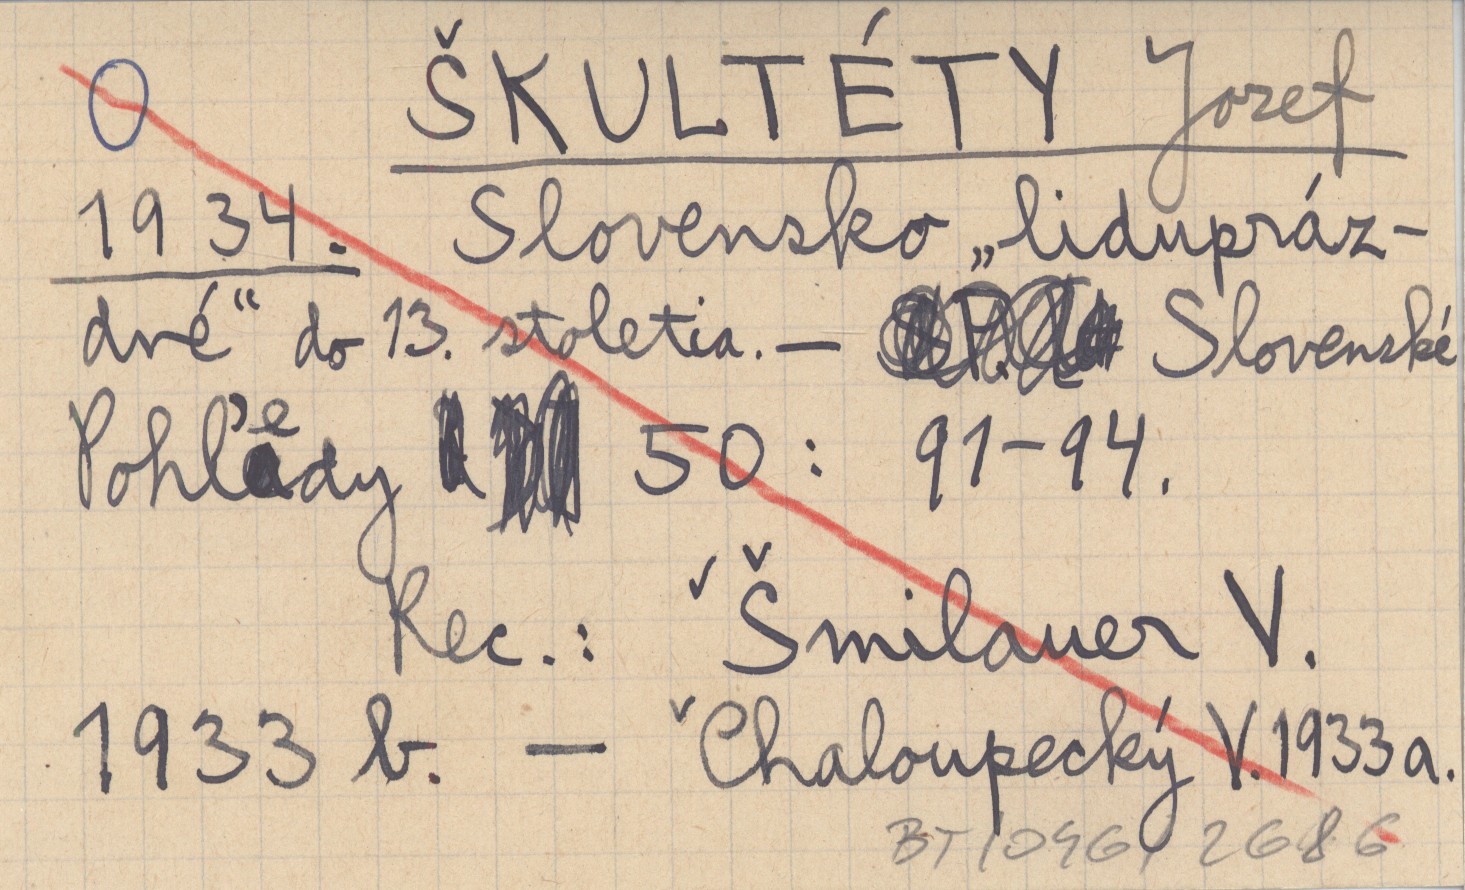 ŠKULTÉTY Jozef
1934. Slovensko „liduprázd-
dné“ do 13. stoletia. — Slovenské
Pohľady 50: 91-94.
Rec.: Šmilauer V.
1933 b. — Chaloupecký V. 1933a.
BT 1046, 2686